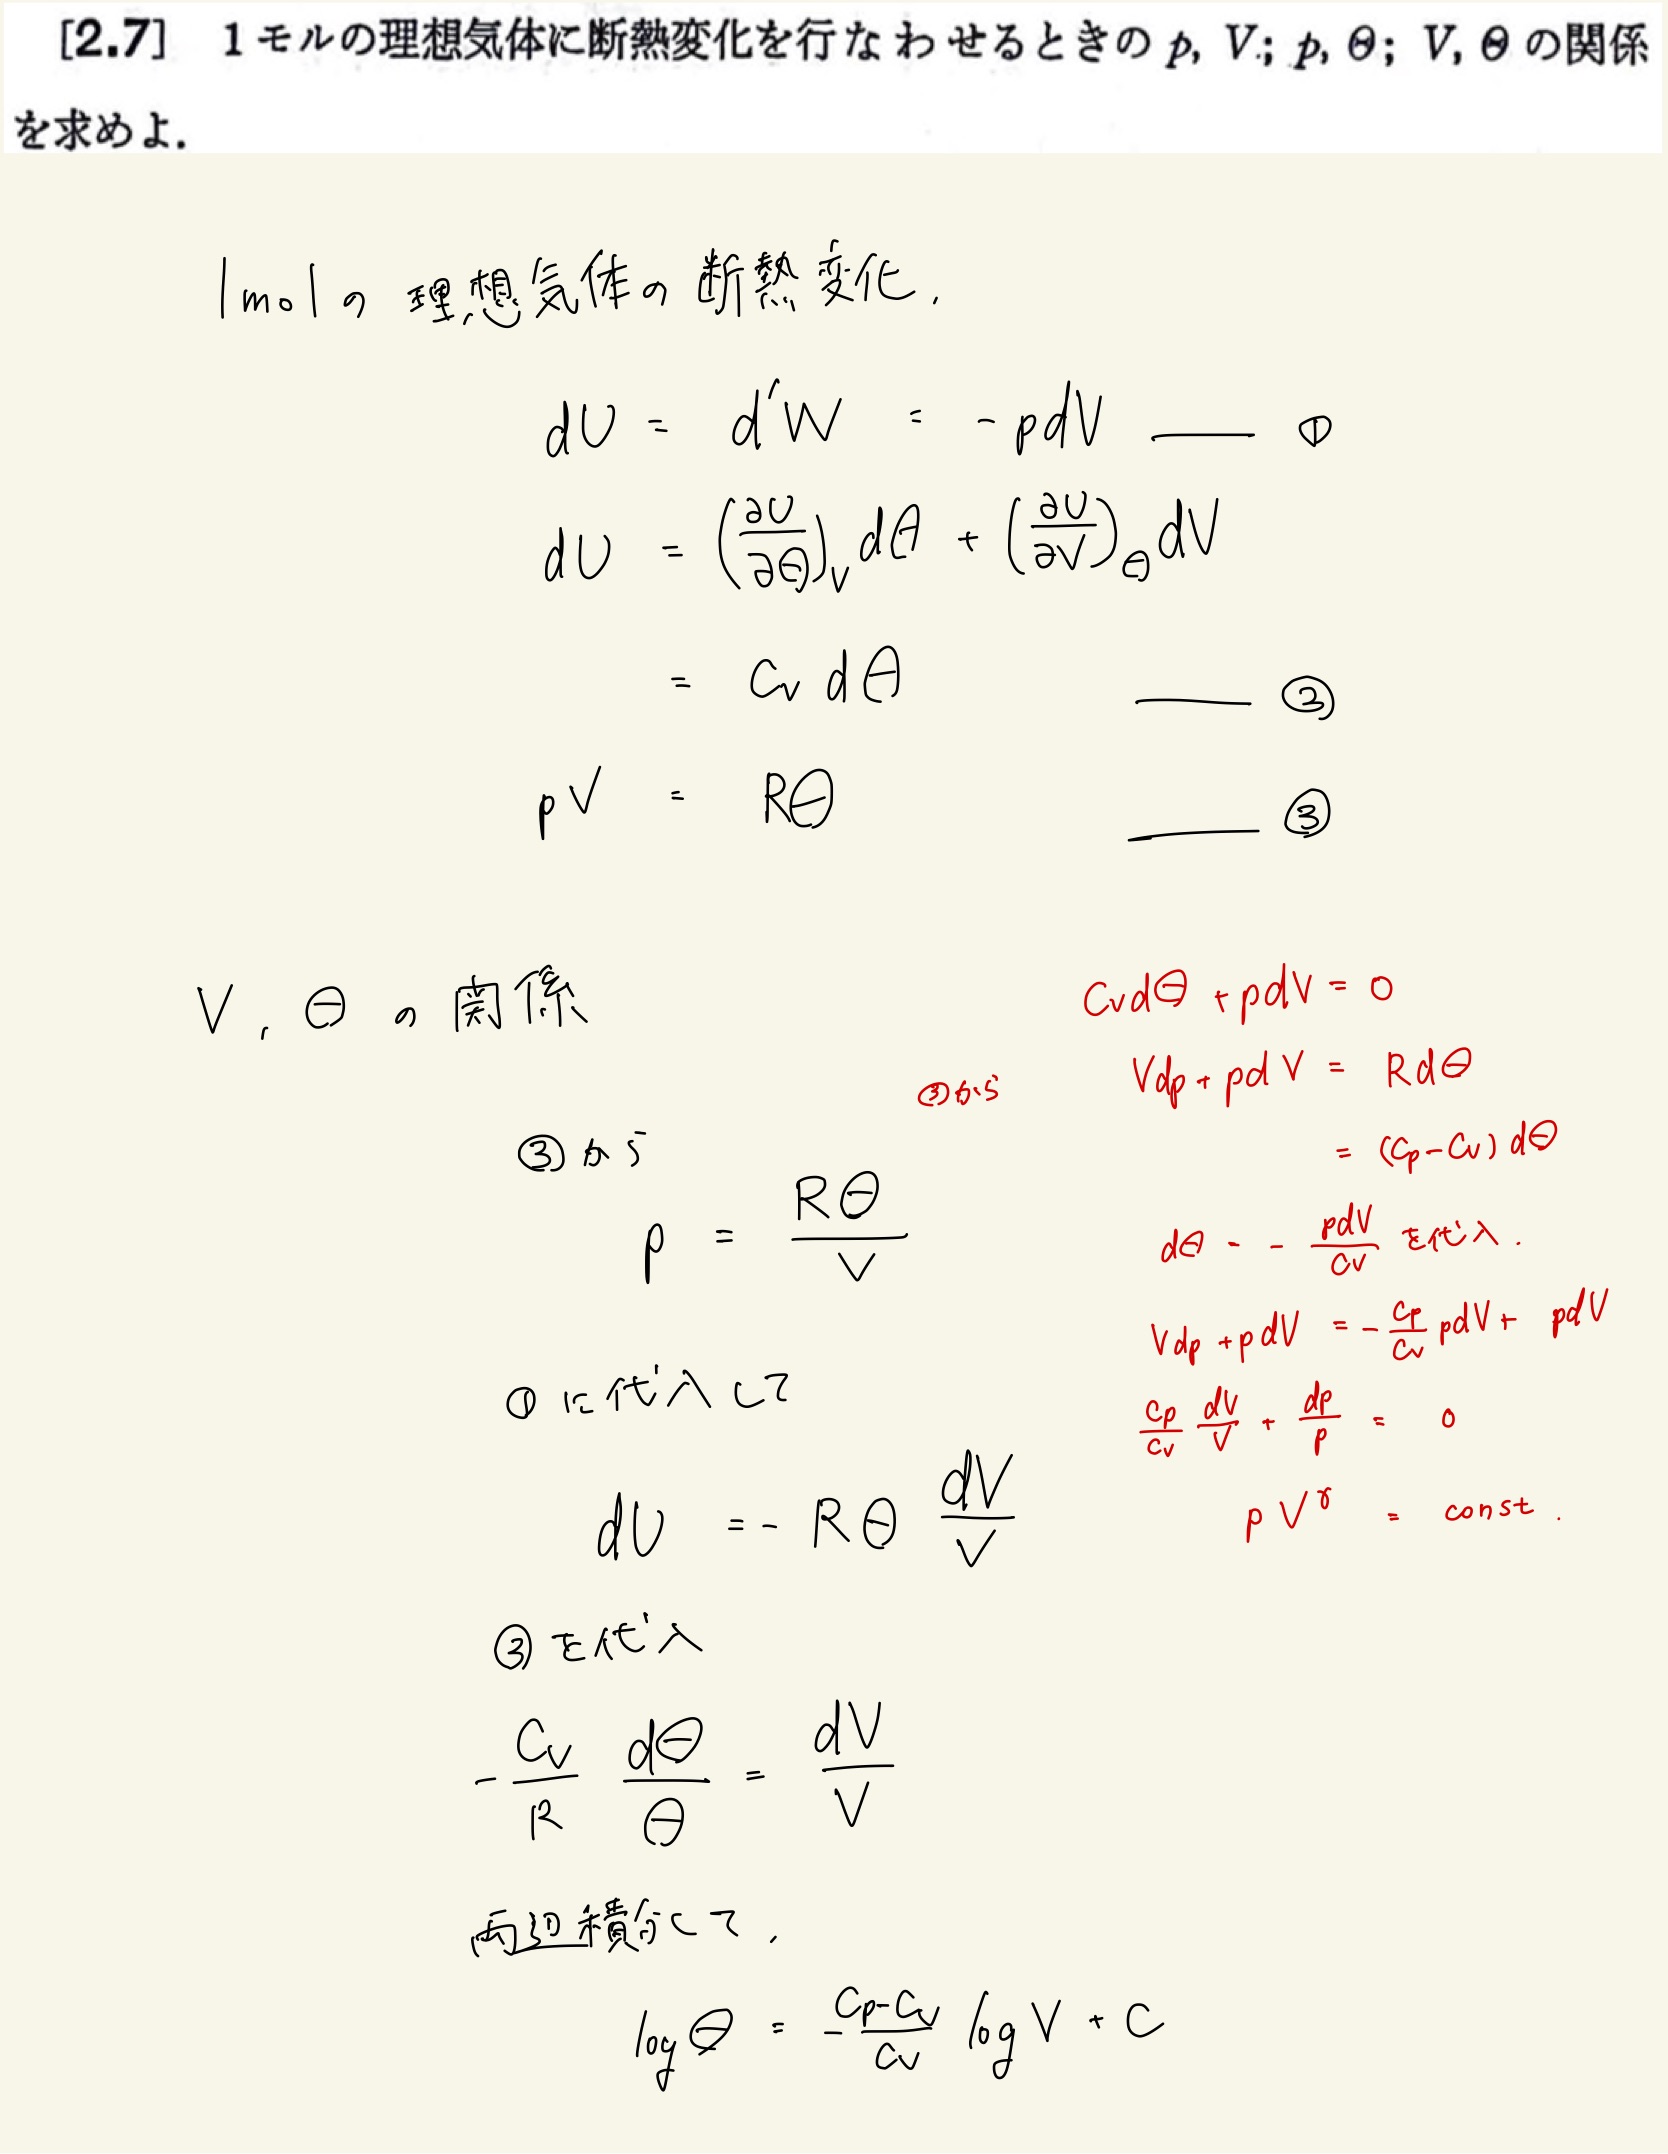 [2.7] 1モルの理想気体に断熱変化を行なわせるときの p, V; p, Θ; V, Θ の関係
を求めよ.
1molの理想気体の断熱変化.
dU = d'W = -pdV ― ①
dU = (∂U/∂Θ)_V dΘ + (∂U/∂V)_Θ dV
= Cv dΘ ― ②
pV = RΘ ― ③
V, Θ の関係
③から
p = RΘ/V
①に代入して
dU = - RΘ dV/V
②を代入
- Cv/R dΘ/Θ = dV/V
両辺積分して,
log Θ = - (Cp-Cv)/Cv log V + C
CvdΘ + pdV = 0
③から Vdp + pdV = RdΘ
= (Cp-Cv) dΘ
dΘ = - pdV/Cv を代入.
Vdp + pdV = - Cp/Cv pdV + pdV
Cp/Cv dV/V + dp/p = 0
pV^γ = const.